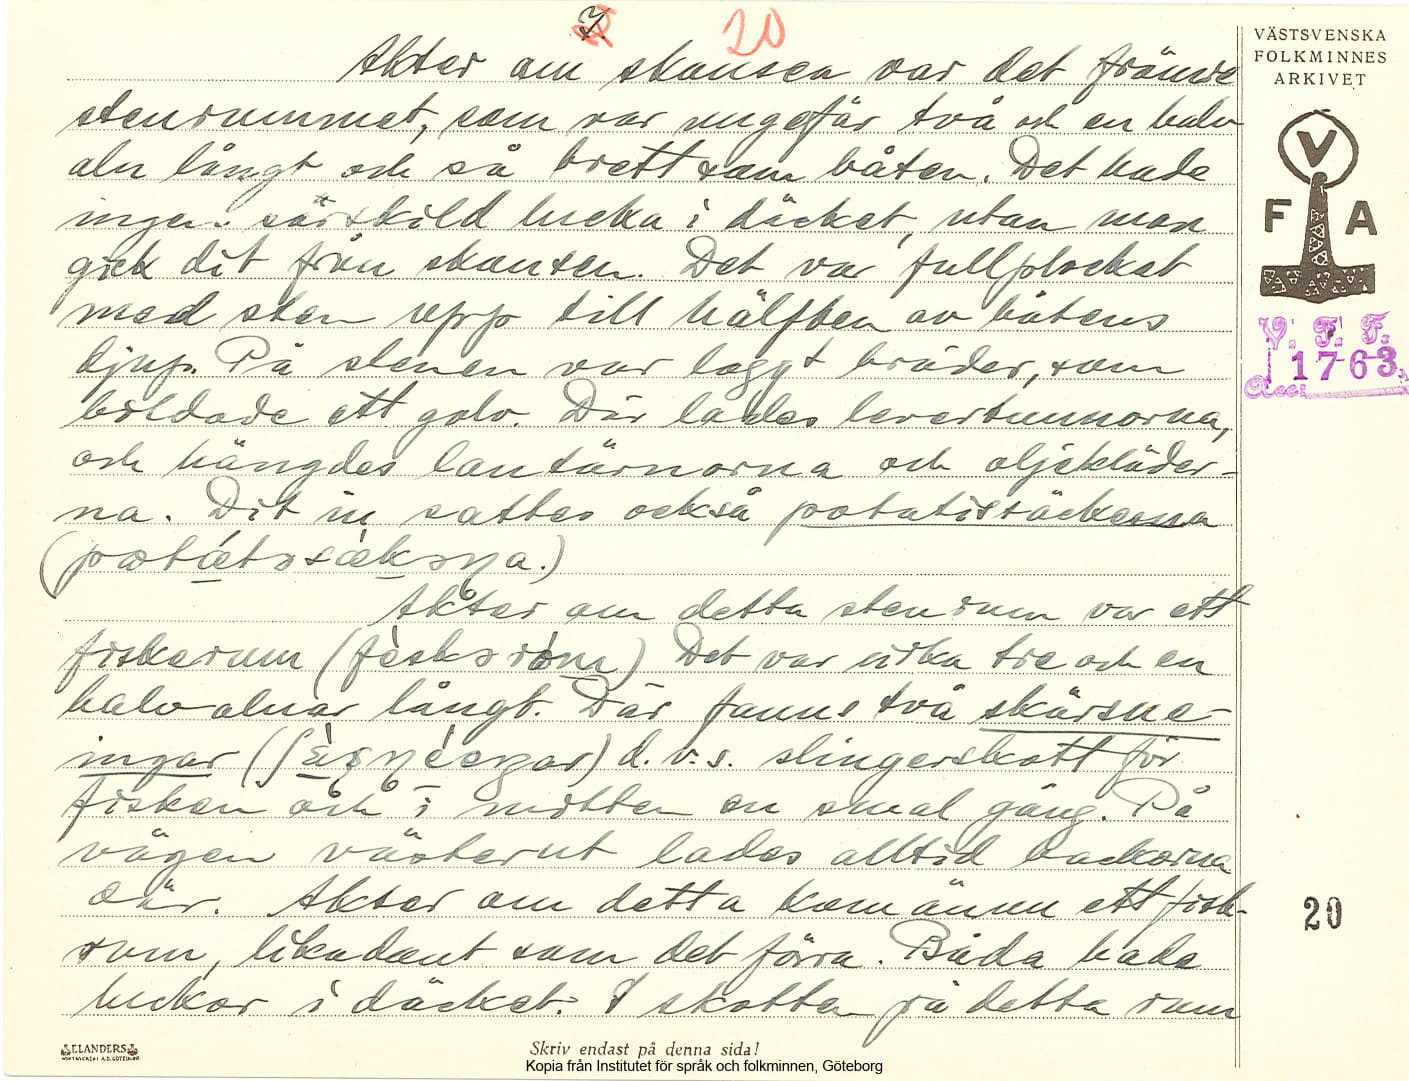 20
VÄSTSVENSKA
FOLKMINNES
ARKIVET
V
F A
V. F. F.
Acc. 1763
Akter om skansen var det främre
stenrummet, som var ungefär två och en halv
aln långt och så brett som båten. Det hade
ingen särskild lucka i däcket, utan man
gick dit från skansen. Det var fullplockat
med sten upp till hälften av båtens
djup. På stenen var laggt bräder, som
bildade ett golv. Där lades levertunnorna,
och hängdes lantärnorna och oljekläder-
na. Dit in sattes också potatissäckerna
Akter om detta stenrum var ett
fiskerum Det var cirka tre och en
halv alnar långt. Där fanns två skärsne-
ingar d.v.s. slingerskott för
fisken och i mitten en smal gång. På
vägen västerut lades alltid backorna
där. Akter om detta kom ännu ett fisk-
rum, likadant som det förra. Båda hade
luckor i däcket. I skotten på detta rum
20
ELANDERS
Skriv endast på denna sida!
Kopia från Institutet för språk och folkminnen, Göteborg